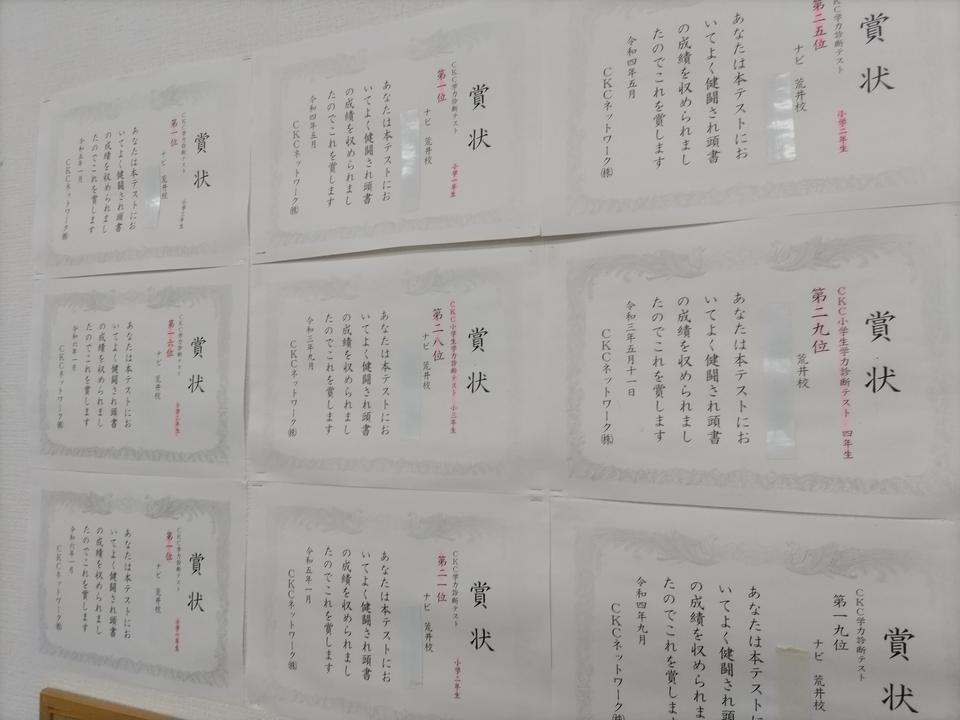 賞状
CKC学力診断テスト 小学三年生
第一位
ナビ 荒井校
あなたは本テストにお
いてよく健闘され頭書
の成績を収められまし
たのでこれを賞します
令和五年一月
CKCネットワーク㈱
賞状
CKC学力診断テスト 小学一年生
第一位
ナビ 荒井校
あなたは本テストにお
いてよく健闘され頭書
の成績を収められまし
たのでこれを賞します
令和四年五月
CKCネットワーク㈱
賞状
KC学力診断テスト 小学二年生
第二五位
ナビ 荒井校
あなたは本テストにお
いてよく健闘され頭書
の成績を収められまし
たのでこれを賞します
令和四年五月
CKCネットワーク㈱
賞状
CKC学力診断テスト
第一六位
ナビ 荒井校
あなたは本テストにお
いてよく健闘され頭書
の成績を収められまし
たのでこれを賞します
令和六年一月
CKCネットワーク㈱
賞状
CKC小学生学力診断テスト 小三年生
第二八位
ナビ 荒井校
あなたは本テストにお
いてよく健闘され頭書
の成績を収められまし
たのでこれを賞します
令和三年九月
CKCネットワーク㈱
賞状
CKC小学生学力診断テスト 四年生
第二九位
荒井校
あなたは本テストにお
いてよく健闘され頭書
の成績を収められまし
たのでこれを賞します
令和三年五月十一日
CKCネットワーク㈱
賞状
CKC学力診断テスト
第一位
ナビ 荒井校
あなたは本テストにお
いてよく健闘され頭書
の成績を収められまし
たのでこれを賞します
令和六年一月
CKCネットワーク㈱
賞状
CKC学力診断テスト 小学二年生
第二一位
ナビ 荒井校
あなたは本テストにお
いてよく健闘され頭書
の成績を収められまし
たのでこれを賞します
令和五年一月
CKCネットワーク㈱
賞状
CKC学力診断テスト
第一九位
ナビ 荒井校
あなたは本テストに
いてよく健闘され頭
の成績を収められま
たのでこれを賞しま
令和四年九月
CKCネットワーク㈱